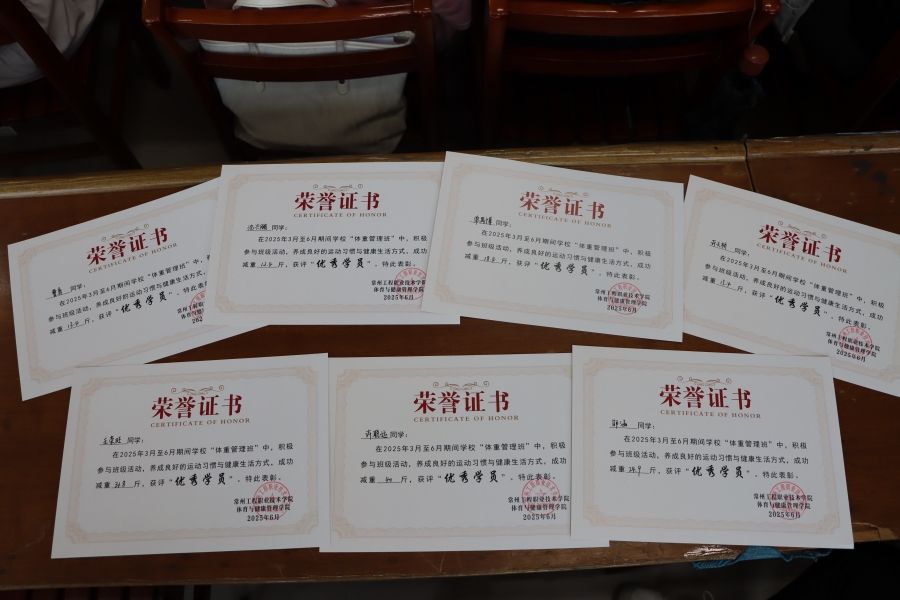 荣誉证书
CERTIFICATE OF HONOR
同学:
在2025年3月至6月期间学校“体重管理班”中，积极
参与班级活动，养成良好的运动习惯与健康生活方式，成功
减重 斤，获评“优秀学员”，特此表彰。
常州
体育
202
荣誉证书
CERTIFICATE OF HONOR
同学:
在2025年3月至6月期间学校“体重管理班”中，积极
参与班级活动，养成良好的运动习惯与健康生活方式，成功
减重 斤，获评“优秀学员”，特此表彰。
常州工程职业技术学
体育与健康管理学院
2025年6月
荣誉证书
CERTIFICATE OF HONOR
同学:
在2025年3月至6月期间学校“体重管理班”中，积极
参与班级活动，养成良好的运动习惯与健康生活方式，成功
减重 斤，获评“优秀学员”，特此表彰。
常州工程职业技术学院
体育与健康管理学院
2025年6月
荣誉证书
CERTIFICATE OF HONOR
同学:
在2025年3月至6月期间学校“体重管理班”中，积极
参与班级活动，养成良好的运动习惯与健康生活方式，成功
减重 斤，获评“优秀学员”，特此表彰。
常州工程职业技术学院
体育与健康管理学院
2025年6月
荣誉证书
CERTIFICATE OF HONOR
同学:
在2025年3月至6月期间学校“体重管理班”中，积极
参与班级活动，养成良好的运动习惯与健康生活方式，成功
减重 斤，获评“优秀学员”，特此表彰。
常州工程职业技术学院
体育与健康管理学院
2025年6月
荣誉证书
CERTIFICATE OF HONOR
同学:
在2025年3月至6月期间学校“体重管理班”中，积极
参与班级活动，养成良好的运动习惯与健康生活方式，成功
减重 斤，获评“优秀学员”，特此表彰。
常州工程职业技术学院
体育与健康管理学院
2025年6月
荣誉证书
CERTIFICATE OF HONOR
同学:
在2025年3月至6月期间学校“体重管理班”中，积极
参与班级活动，养成良好的运动习惯与健康生活方式，成功
减重 斤，获评“优秀学员”，特此表彰。
常州工程职业技术学院
体育与健康管理学院
2025年6月